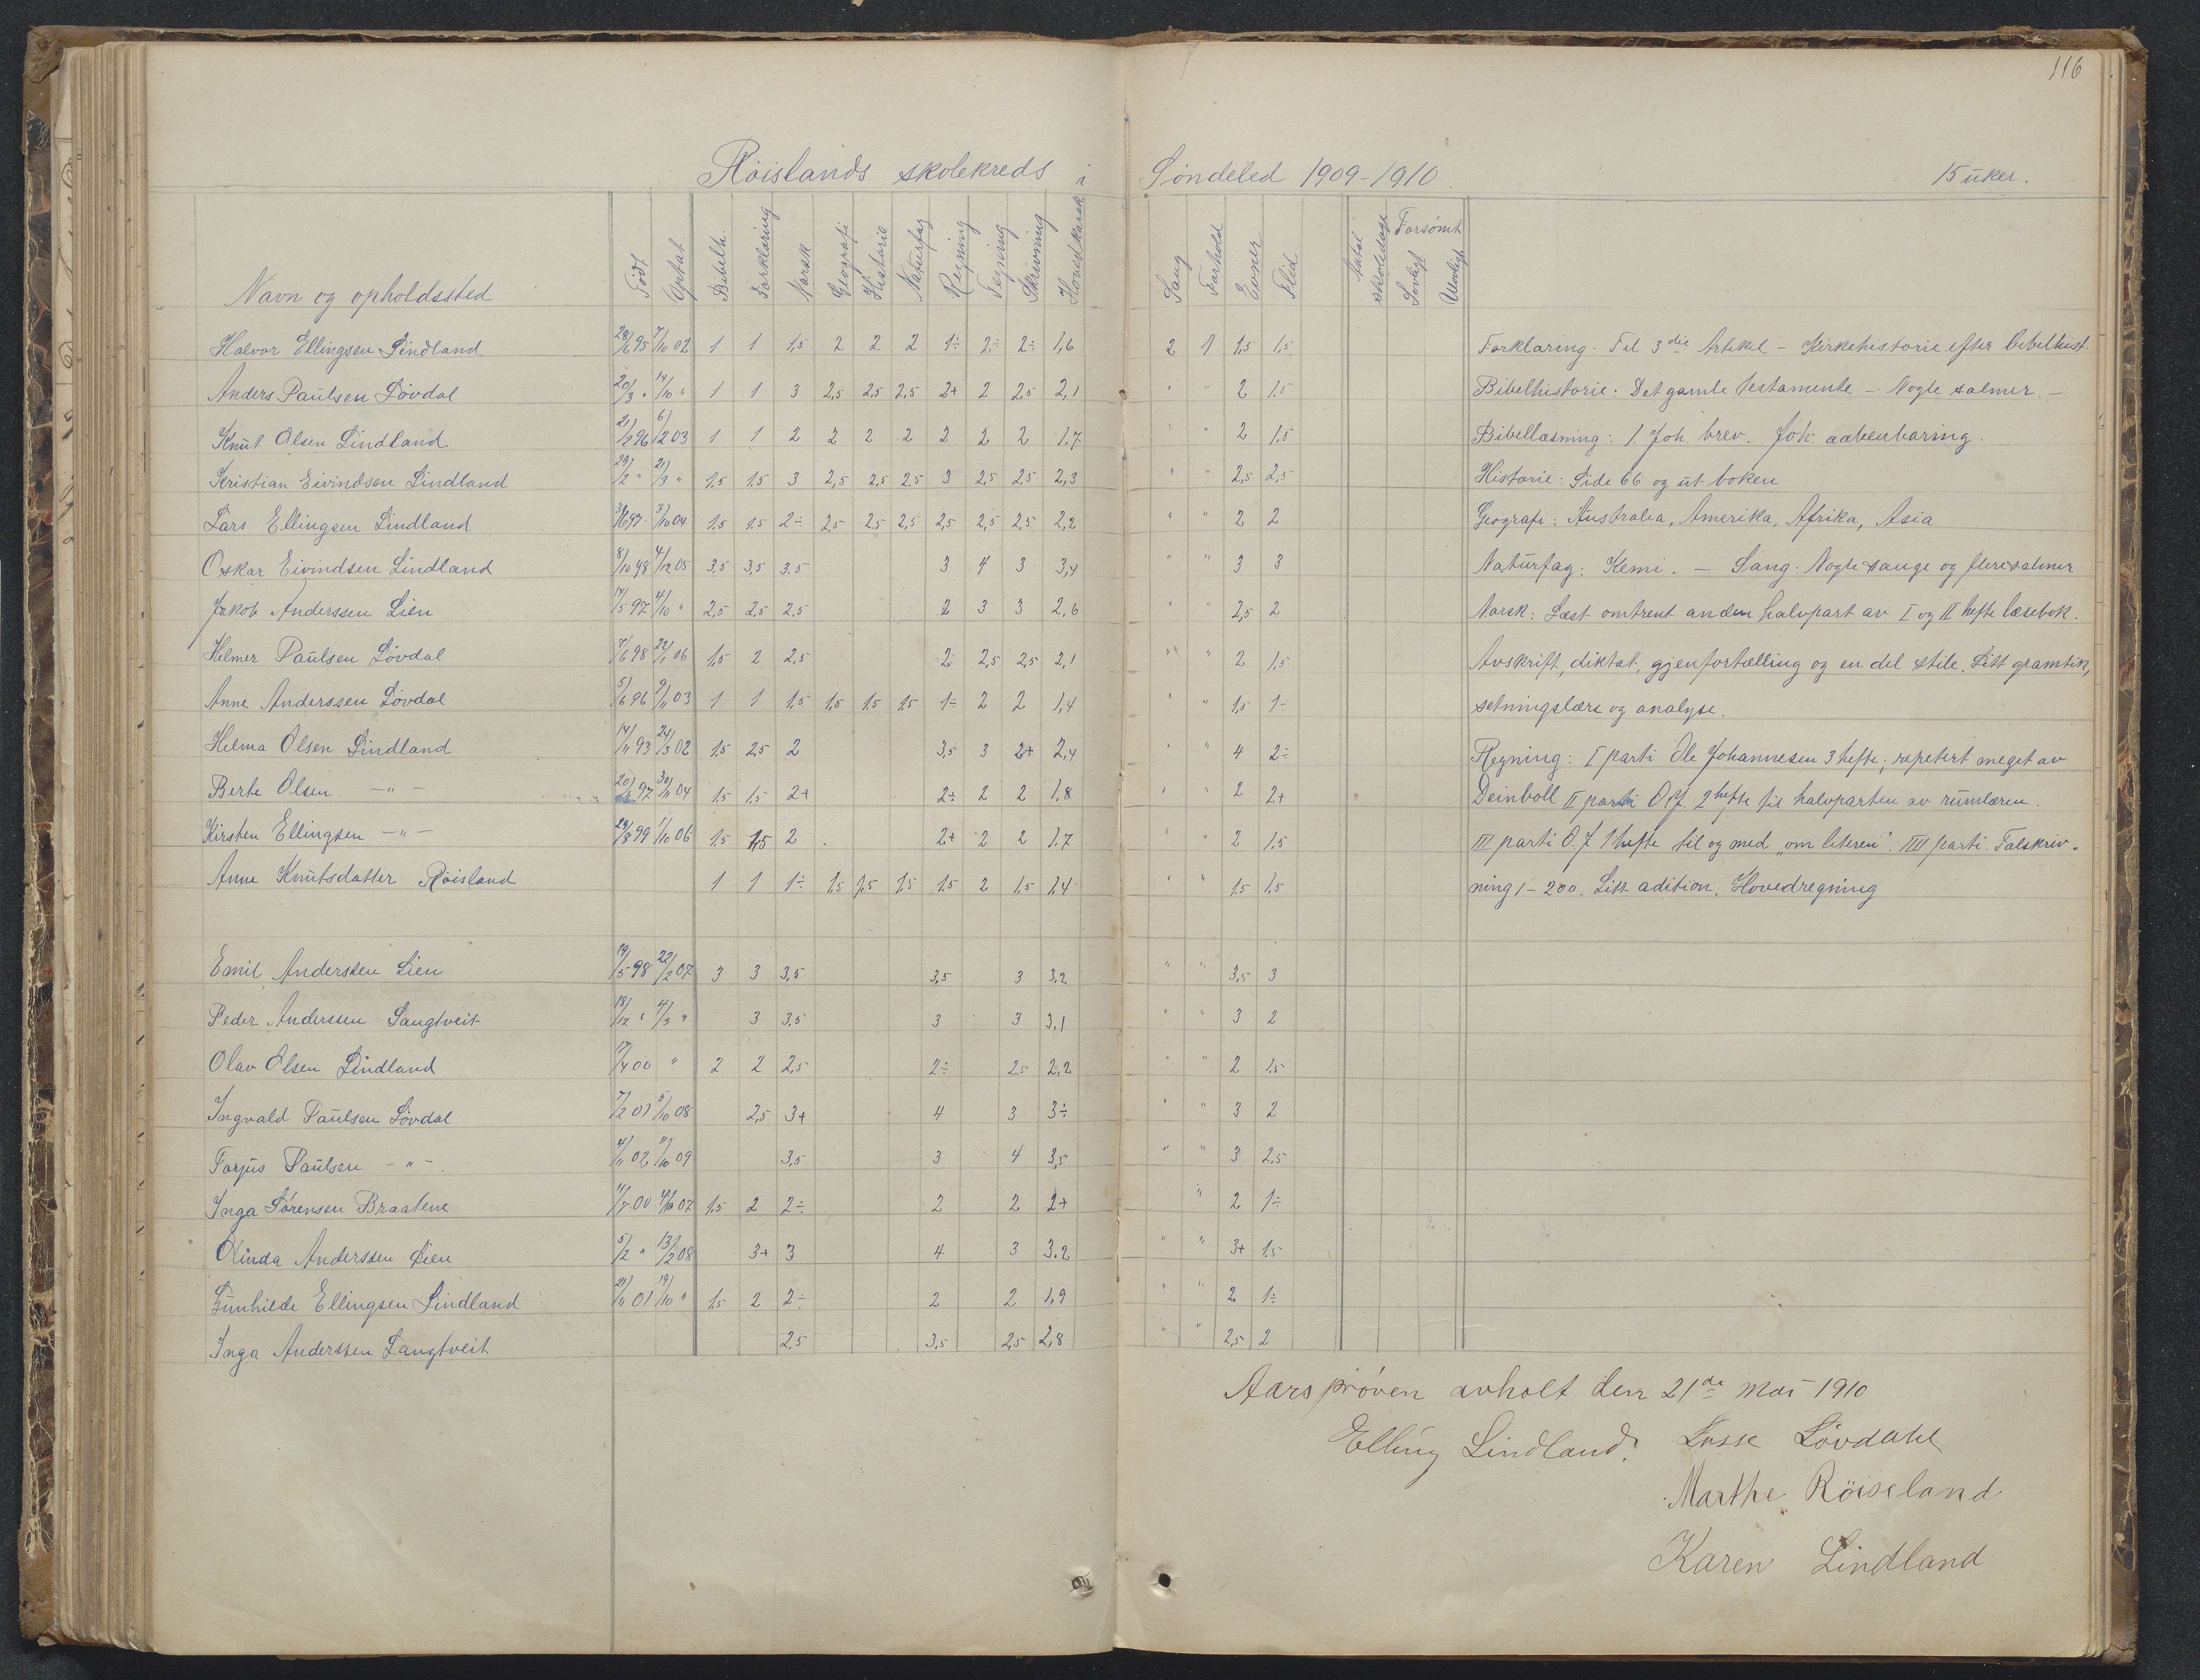 116
Röislands skolekreds i Söndeled 1909-1910. 15 uker.
Navn og opholdssted Född Optat Bibelh. Forklaring Norsk Geografi Historie Naturfag Regning Tegning Skrivning Hovedkarak Sang Forhold Evner Flid Antal skoledage Forsømt Lovligt Ulovligt
Halvor Ellingsen Lindland 28/6 95 7/10 02 1 1 1,5 2 2 2 1÷ 2÷ 2÷ 1,6 2 1 1,5 1,5 Forklaring: Til 3die Artikel - Kirkehistorie efter bibelhist.
Anders Paulsen Lövdal 20/3 " 14/10 " 1 1 3 2,5 2,5 2,5 2+ 2 2,5 2,1 " " 2 1,5 Bibelhistorie: Det gamle testamente - Nogle salmer -
Knut Olsen Lindland 21/2 96 6/12 03 1 1 2 2 2 2 2 2 2 1,7 " " 2 1,5 Bibellæsning: 1. Joh. brev. Joh. aabenbaring.
Kristian Eivindsen Lindland 29/2 " 21/3 " 1,5 1,5 3 2,5 2,5 2,5 3 2,5 2,5 2,3 " " 2,5 2,5 Historie: Side 66 og ut boken
Lars Ellingsen Lindland 97 3/10 04 1,5 1,5 2÷ 2,5 2,5 2,5 2,5 2,5 2,5 2,2 " " 2 2 Geografi: Australia, Amerika, Afrika, Asia
Oskar Eivindsen Lindland 8/10 98 4/12 05 3,5 3,5 3.5 3 4 3 3,4 " " 3 3 Naturfag: Kemi. - Sang: Nogle sange og flere salmer
Jakob Anderssen Lien 14/5 97 4/10 " 2,5 2,5 2,5 2 3 3 2,6 " " 2,5 2 Norsk: Læst omtrent anden halvpart av I og II hefte læsebok.
Helmer Paulsen Lövdal 7/6 98 22/1 06 1,5 2 2,5 2 2,5 2,5 2,1 " " 2 1,5 Avskrift, diktat, gjenfortælling og en del stile. Litt gramtik,
Anne Anderssen Lövdal 5/6 96 9/11 03 1 1 1,5 1,5 1,5 1,5 1÷ 2 2 1,4 " " 1,5 1÷ setningslære og analyse.
Helma Olsen Lindland 14/11 93 24/3 02 1,5 2,5 2 3,5 3 2+ 2,4 " " 4 2÷ Regning: I parti Ole Johannesen 3 hefte; repetert meget av
Berte Olsen -"- 20/ 97 30/11 04 1,5 1,5 2+ 2÷ 2 2 1,8 " " 2 2+ Deinboll II parti O.J. 2 hefte til halvparten av rumlæren.
Kirsten Ellingsen -"- 29/8 99 1/10 06 1,5 1,5 2 2+ 2 2 1,7 " " 2 1,5 III parti O. J 1 hefte til og med "om literen". IIII parti. Talskriv-
Anne Knutsdatter Röisland 1 1 1÷ 1,5 1,5 1,5 1,5 2 1,5 1,4 " " 1,5 1,5 ning 1-200. Litt adition. Hovedregning
Emil Anderssen Lien 19/5 98 22/2 07 3 3 3,5 3,5 3 3,2 " " 3,5 3
Peder Anderssen Langtveit 18/12 " 4/3 " 3 3,5 3 3 3,1 " " 3 2
Olav Olsen Lindland 17/4 00 " 2 2 2,5 2÷ 2,5 2,2 " " 2 1,5
Ingvald Paulsen Lövdal 7/2 01 5/10 08 2,5 3+ 4 3 3÷ " " 3 2
Torjus Paulsen -"-. 4/11 02 11/10 09 3,5 3 4 3,5 " " 3 2,5
Inga Sörensen Braatene 11/7 00 4/10 07 1,5 2 2÷ 2 2 2+ " 2 1÷
Olinda Anderssen Lien 5/2 " 13/2 08 3+ 3 4 3 3.2 " " 3+ 1,5
Gunhilde Ellingsen Lindland 21/11 01 19/10 " 1,5 2 2÷ 2 2 1,9 " " 2 1÷
Inga Anderssen Langtveit 2,5 3,5 2,5 2,8 " " 2,5 2
Aarsprøven avholt den 21de mai 1910
Elling Lindland. Lasse Lövdahl
Marthe Röiseland
Karen Lindland